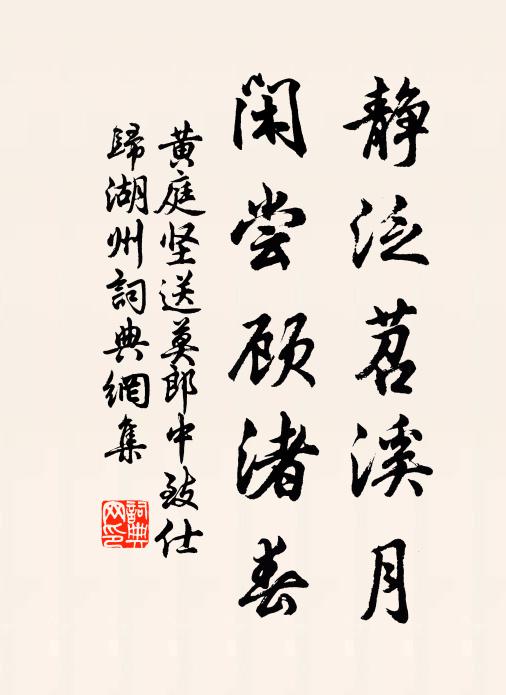 静泛苕溪月
闲尝顾渚春
黄庭坚送莫郎中致仕
歸湖州詞典網集
詞典网印